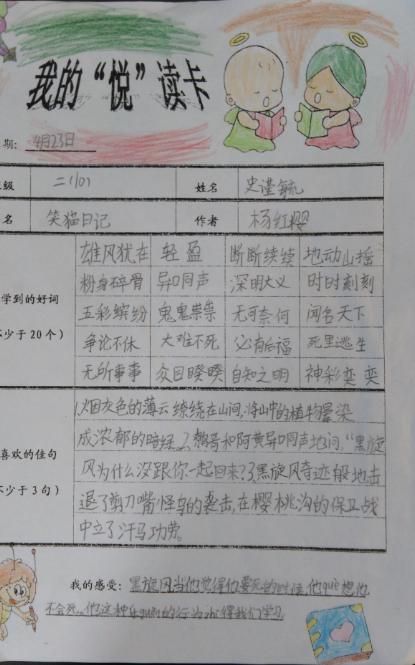 我的“悦”读卡
期: 4月23日
级 二(10) 姓名 史谨毓
名 笑猫日记 作者 杨红樱
学到的好词
不少于20个)
雄风犹在 轻盈 断断续续 地动山摇
粉身碎骨 异口同声 深明大义 时时刻刻
五彩缤纷 鬼鬼祟祟 无可奈何 闻名天下
争论不休 大难不死 必有后福 死里逃生
无所事事 众目睽睽 自知之明 神彩奕奕
喜欢的佳句
不少于3句)
1.烟灰色的薄云缭绕在山间,将山中的植物晕染
成浓郁的暗绿。2.鹅哥和阿黄异口同声地问,“黑旋
风为什么没跟你一起回来?3.黑旋风奇迹般地击
退了剪刀嘴怪鸟的袭击,在樱桃沟的保卫战
中立了汗马功劳。
我的感受: 黑旋风当他觉得他要死的时候,他想他
不会死。他这种乐观的行为值得我们学习